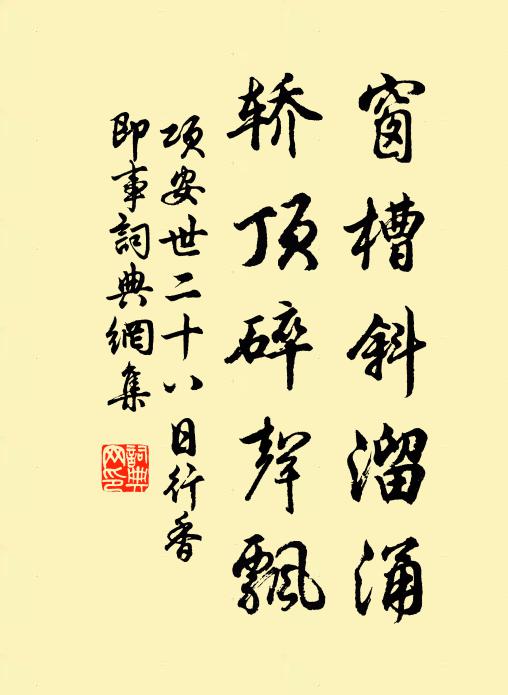 窗槽斜溜涌
轿顶碎聲飘
项安世二十八日行香
即事詞典網集
詞典网印